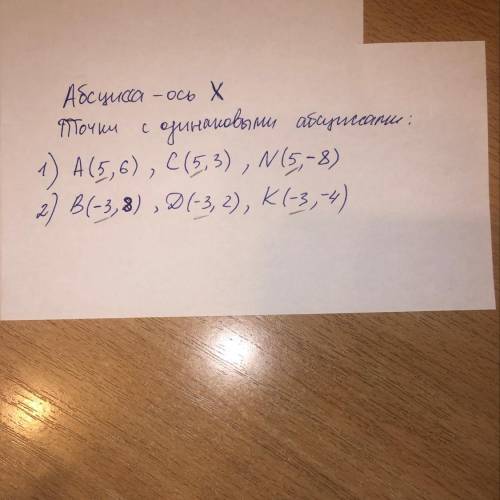 Абсцисса - ось X
Точки с одинаковыми абсциссами:
1) A(5,6) , C(5,3) , N(5,-8)
2) B(-3,8) , D(-3,2) , K(-3,-4)